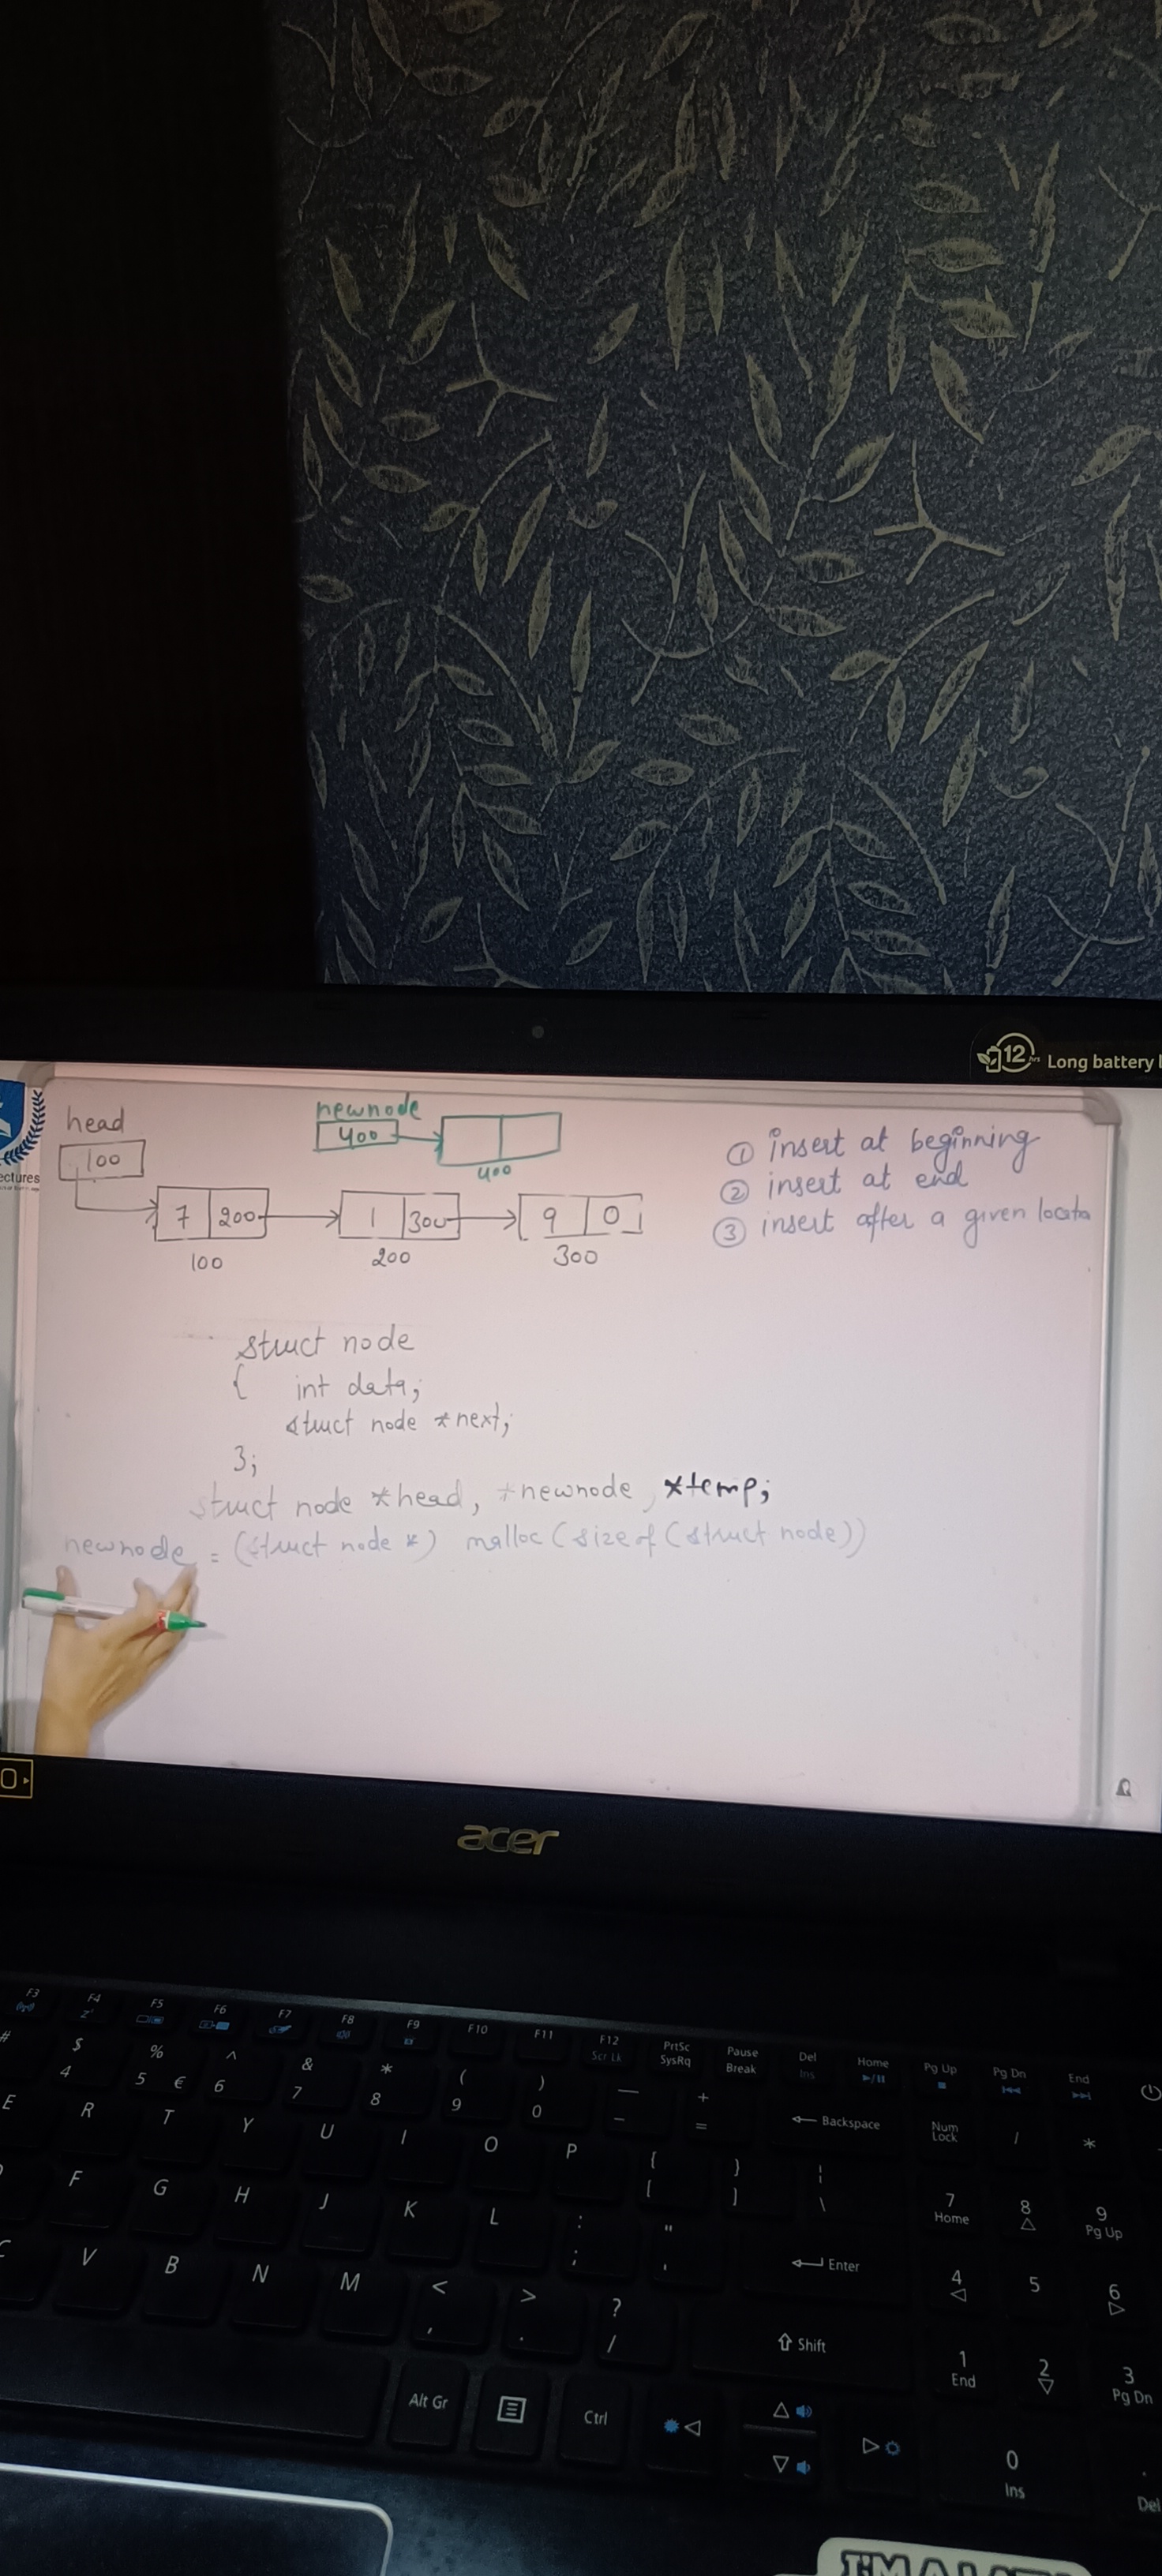 12 hrs Long battery
ectures
head
100
newnode
400
400
7 200
1 300
9 0
100
200
300
① insert at beginning
② insert at end
③ insert after a given locatio
struct node
{ int data;
struct node *next;
};
struct node *head, *newnode, *temp;
newnode = (struct node *) malloc(sizeof(struct node))
acer
F3 F4 F5 F6 F7 F8 F9 F10 F11 F12 Scr Lk PrtSc SysRq Pause Break Del Ins Home Pg Up Pg Dn End
# $ 4 % 5 € ^ 6 & 7 * 8 ( 9 ) 0 — - + = Backspace Num Lock / *
E R T Y U I O P { [ } ] ¦ \ 7 Home 8 9 Pg Up
F G H J K L : ; " ' Enter 4 5 6
C V B N M < , > . ? / Shift 1 End 2 3 Pg Dn
Alt Gr Ctrl 0 Ins . Del